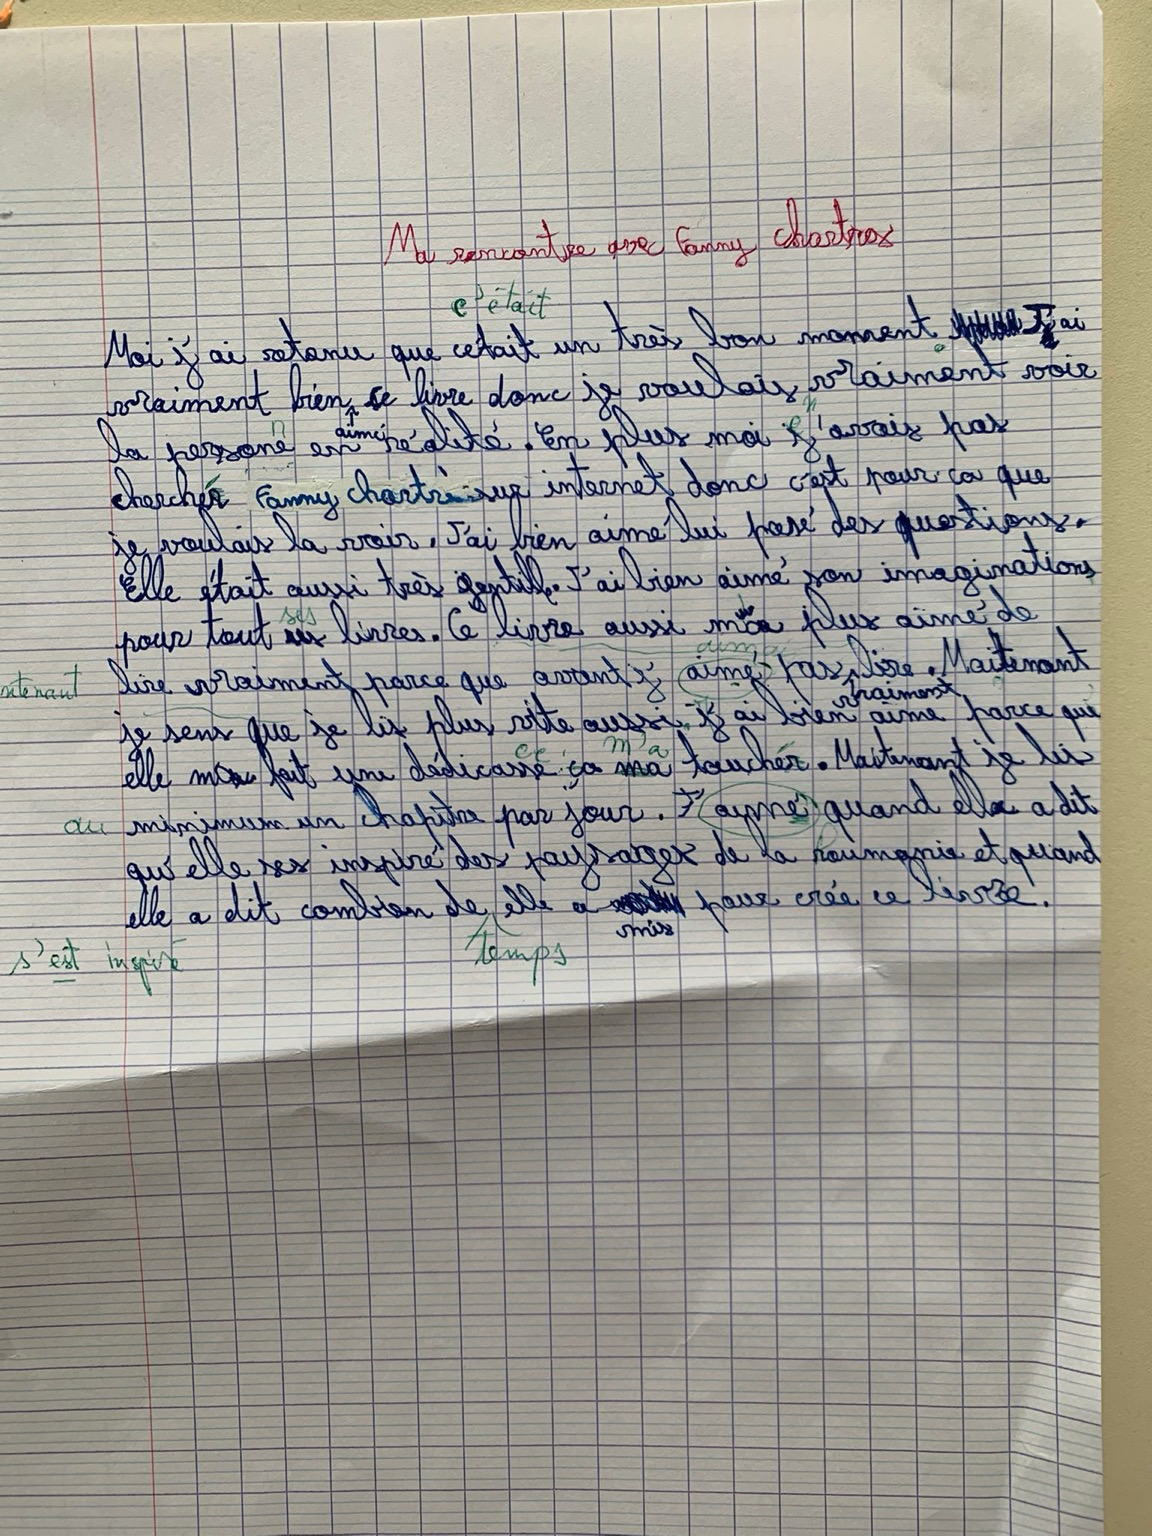 Ma rencontre avec Fanny chartres
c'était
Moi j'ai retenu que cetait un très bon moment. J'ai
vraiment bien ce livre donc je voulais vraiment voir
aimé
n
n
la persone en réalité. En plus moi j'avais pas
cherché Fanny chartre sur internet donc c'est pour ça que
je voulais la voir. J'ai bien aimé lui posé des questions.
Elle était aussi très gentille. J'ai bien aimé son imaginations
ses
pour tout livres. Ce livre aussi m'a plus aimé de
lire vraiment parce que avant j'aimé pas lire. Maitenant
ntenant
vraiment
je sens que je lis plus vite aussi j'ai bien aimé parce que
ce m'a
elle ma fait une dédicasse ça ma touchér. Maitenant je lis
au minimum un chapitre par jour. J'aymé quand elle a dit
qu'elle ses inspiré des paysages de la roumanie et quand
elle a dit combien de elle a pour crée ce livre.
mis
s'est inspiré
temps